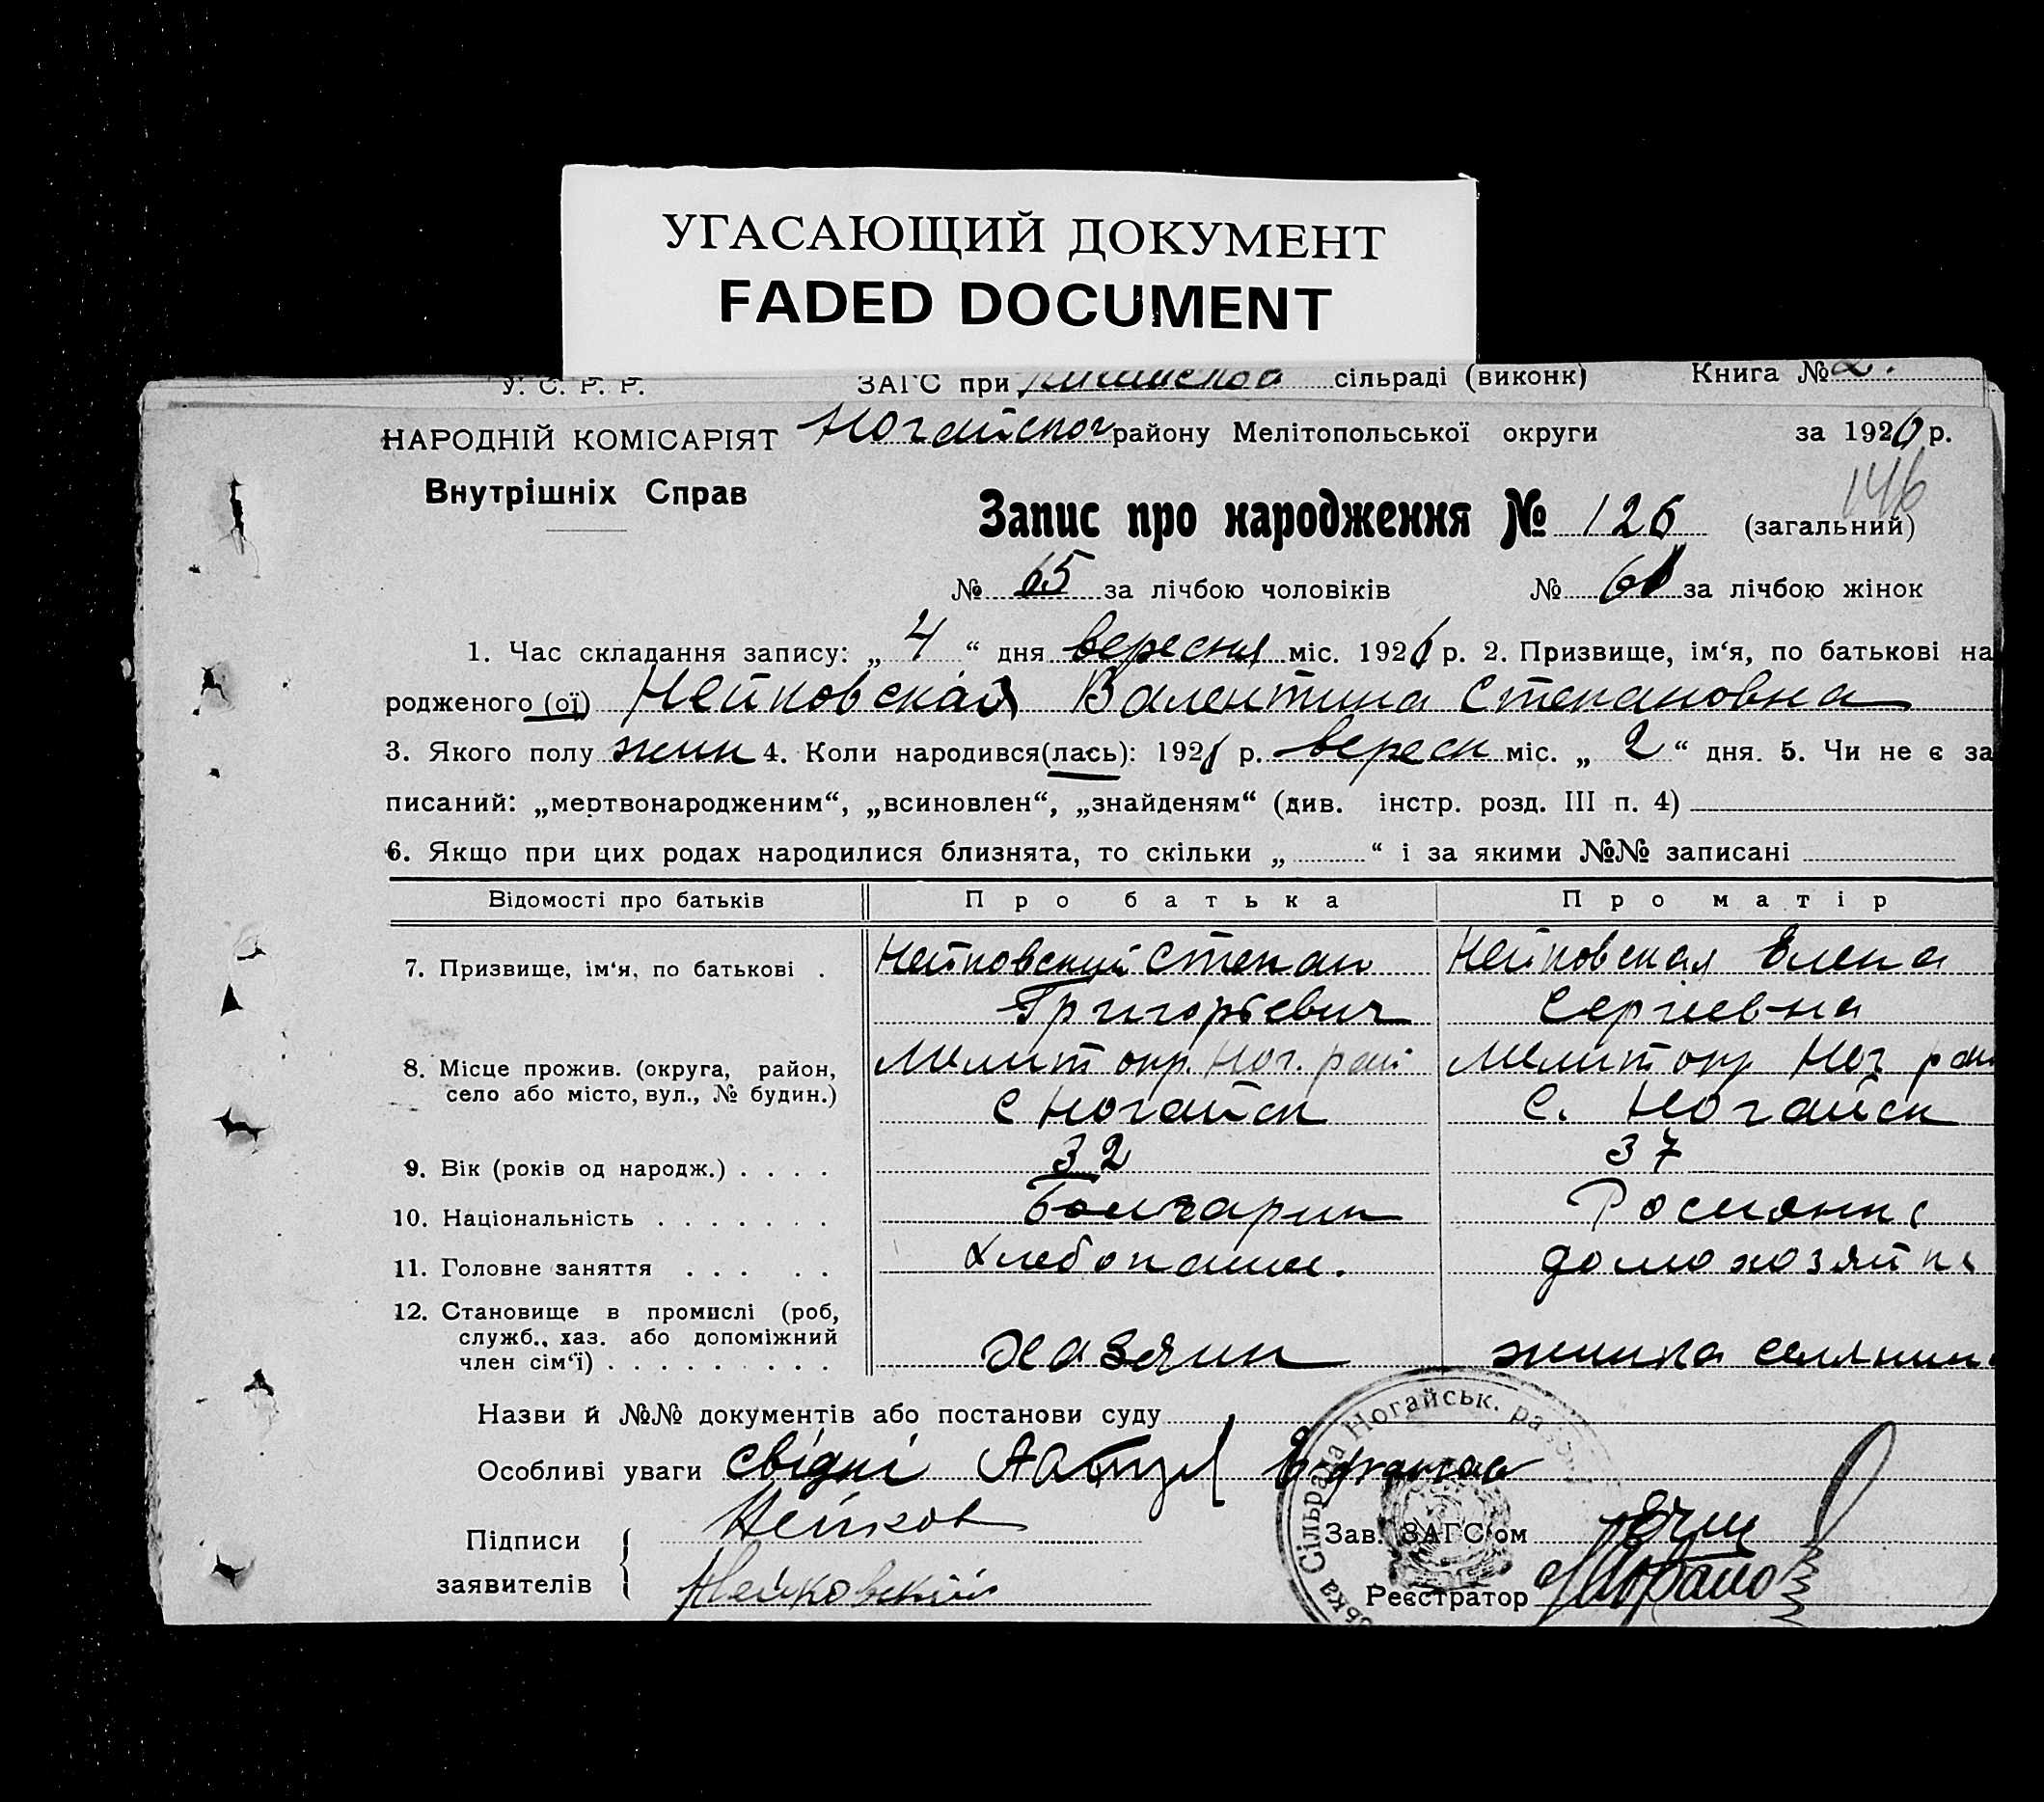 УГАСАЮЩИЙ ДОКУМЕНТ
FADED DOCUMENT
У. С. Р. Р. ЗАГС при сільраді (виконк) Книга № 2.
НАРОДНІЙ КОМІСАРІЯТ Ногайског району Мелітопольської округи за 1926 р.
Внутрішніх Справ
146
Запис про народження № 126 (загальний)
№ 65 за лічбою чоловіків № 61 за лічбою жінок
1. Час складання запису: „ 4 “ дня вересня міс. 1926 р. 2. Призвище, ім‘я, по батькові на
родженого (ої) Нейковская Валентина Степановна
3. Якого полу жин 4. Коли народився(лась): 1926 р. вересн міс. „ 2 “ дня. 5. Чи не є за
писаний: „мертвонародженим“, „всиновлен“, „знайденям“ (див. інстр. розд. III п. 4)
6. Якщо при цих родах народилися близнята, то скільки „ “ і за якими №№ записані
Відомості про батьків Про батька Про матір
7. Призвище, ім‘я, по батькові . Нейковский Степан Нейковская Елена
Григорьевич Сергіевна
8. Місце прожив. (округа, район, Мелит окр. Ног. рай Мелит окр Ног рай
село або місто, вул., № будин.) с Ногайск с. Ногайск
9. Вік (років од народж.) . . . . 32 37
10. Національність . . . . . . . Болгарин Росиянка
11. Головне заняття . . . . . Хлебопашец. домохозяйка
12. Становище в промислі (роб,
служб., хаз. або допоміжний
член сім‘ї) . . . . . . . . . хазяин жинка селянина
Назви й №№ документів або постанови суду
Особливі уваги свідкі
Підписи Нейков Зав. ЗАГС‘ом
заявителів Нейковский Реєстратор
Сільрада Ногайськ.